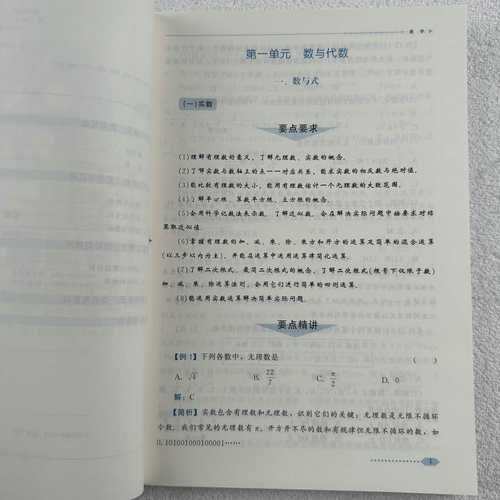 数 学
第一单元 数与代数
一、数与式
(一)实数
要点要求
(1)理解有理数的意义，了解无理数、实数的概念。
(2)了解实数与数轴上的点一一对应关系，能求实数的相反数与绝对值。
(3)能比较有理数的大小，能用有理数估计一个无理数的大致范围。
(4)了解平方根、算数平方根、立方根的概念。
(5)会用科学记数法表示数，了解近似数，会在解决实际问题中按要求对结
果取近似值。
(6)掌握有理数的加、减、乘、除、乘方和开方的运算及简单的混合运算
(以三步以内为主)，并能在运算中运用运算律简化运算。
(7)了解二次根式、最简二次根式的概念，了解二次根式(根号下仅限于数)
加、减、乘、除运算法则，会用它们进行简单的四则运算。
(8)能运用实数运算解决简单实际问题。
要点精讲
【例1】下列各数中，无理数是 ( )
A. √4 B. 22/7 C. π/2 D. 0
解：C
【简析】实数包含有理数和无理数，识别它们的关键：无理数是无限不循环
小数，我们常见的无理数有π、开方开不尽的数和有规律但无限不循环的数，如
0.101001000100001……
1